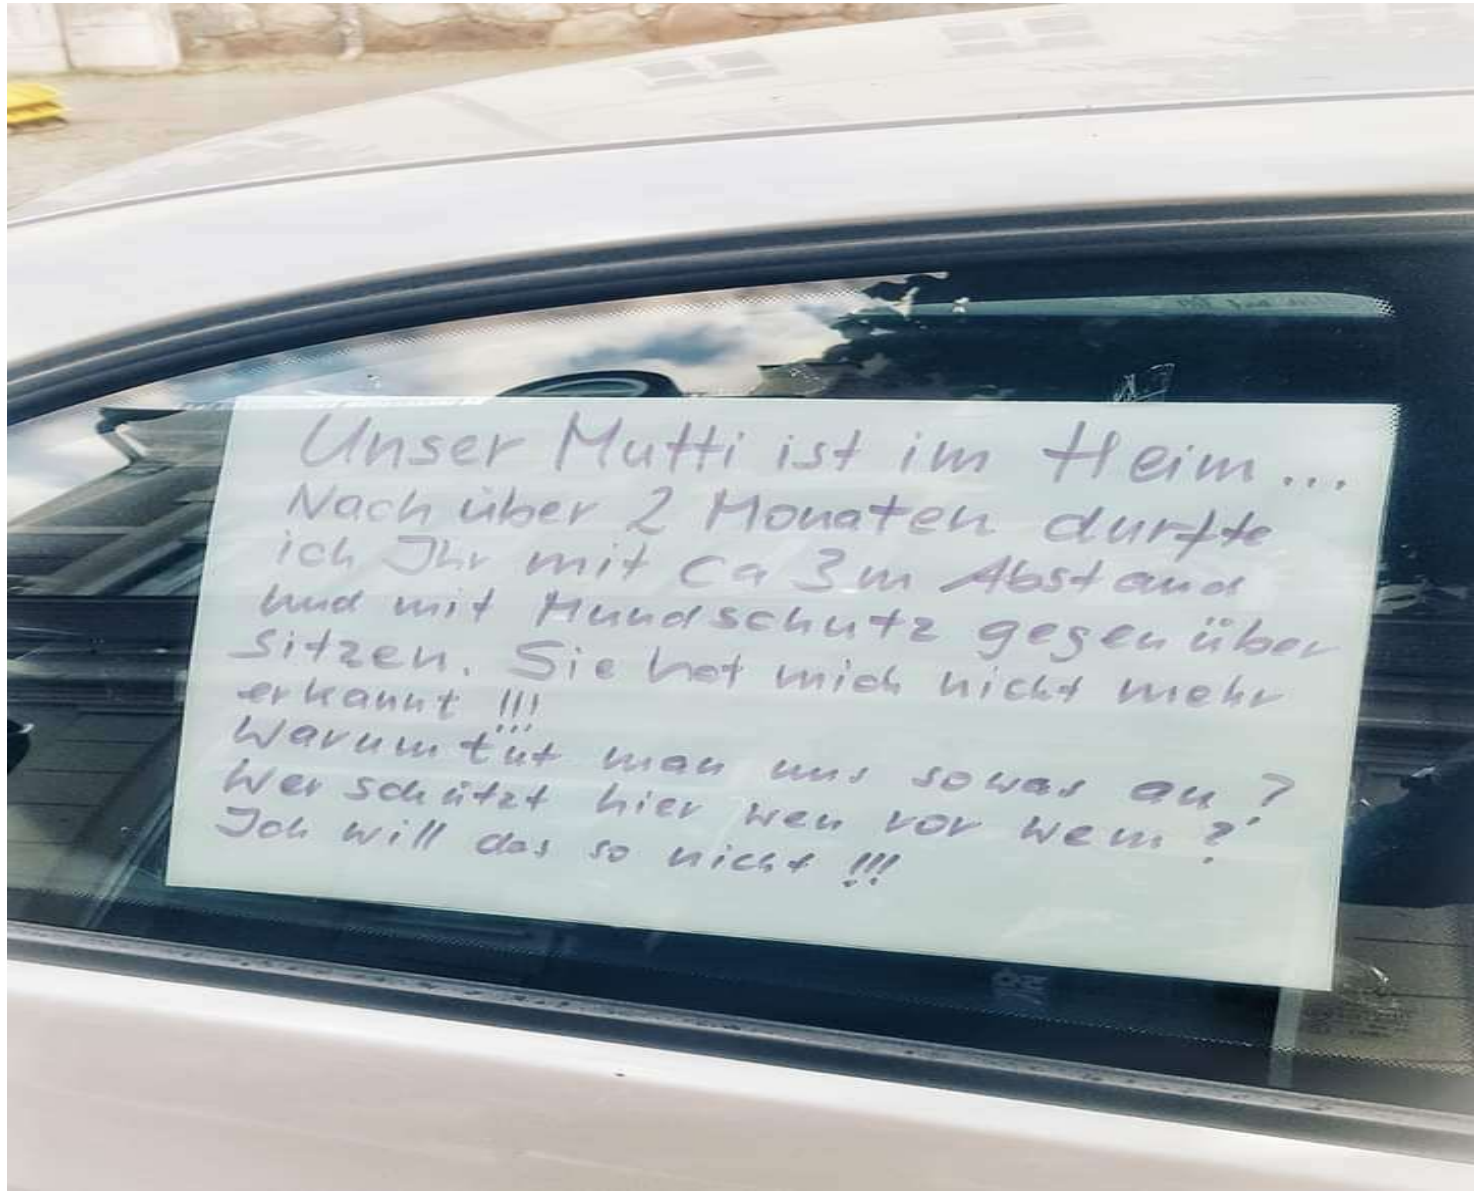 Unser Mutti ist im Heim...
Nach über 2 Monaten durfte
ich Ihr mit ca 3m Abstand
und mit Mundschutz gegenüber
sitzen. Sie hat mich nicht mehr
erkannt !!!
Warum tut man uns sowas an ?
Wer schützt hier wen vor wem ?
Ich will das so nicht !!!